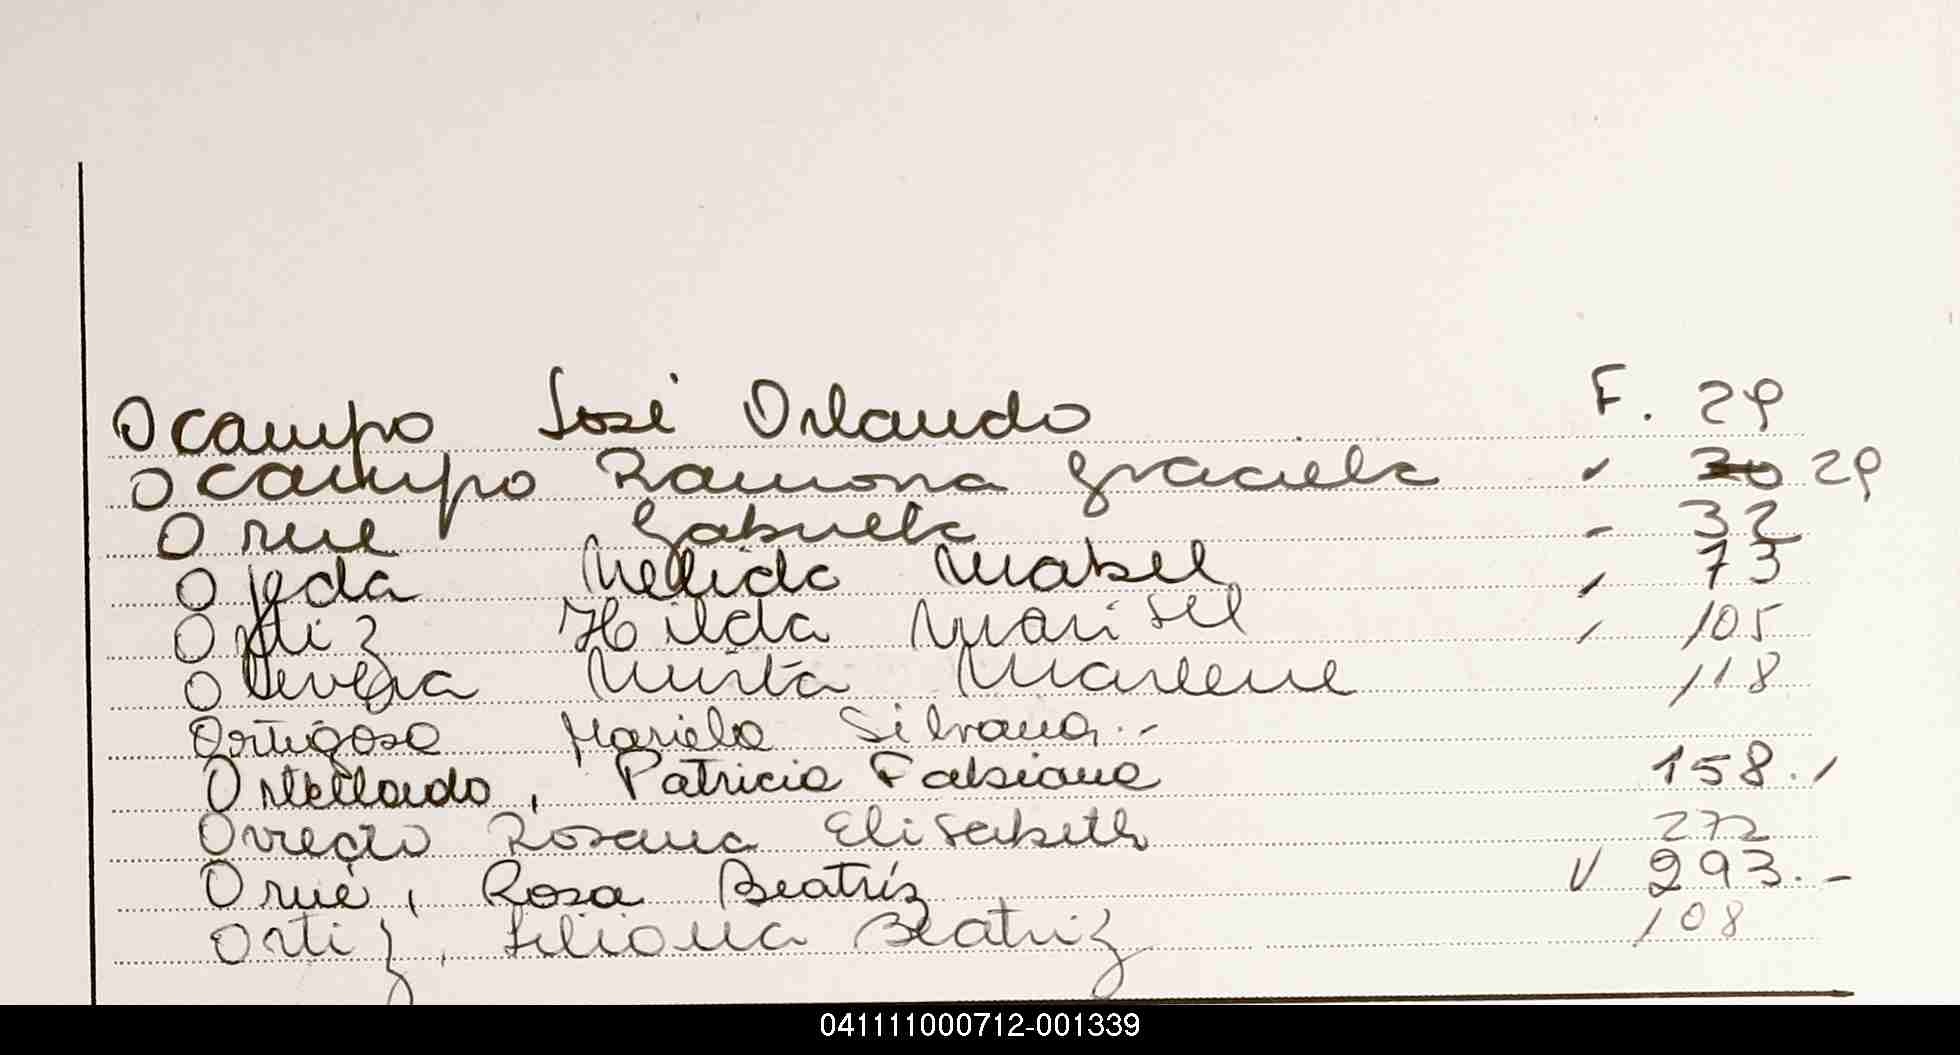 Ocampo José Orlando F. 29
Ocampo Ramona Graciela " 30 29
Orue Gabriela - 32
Ojeda Nelida Mabel " 73
Ortiz Hilda Marisel " 105
Olevera Mirta Marlene 118
Ortigosa Mariela Silvana.-
Ortellado, Patricia Fabiana 158.-
Oviedo Rosana Elisabeth 272
Orué, Rosa Beatríz V 293.-
Ortiz, Liliana Beatriz 108
041111000712-001339